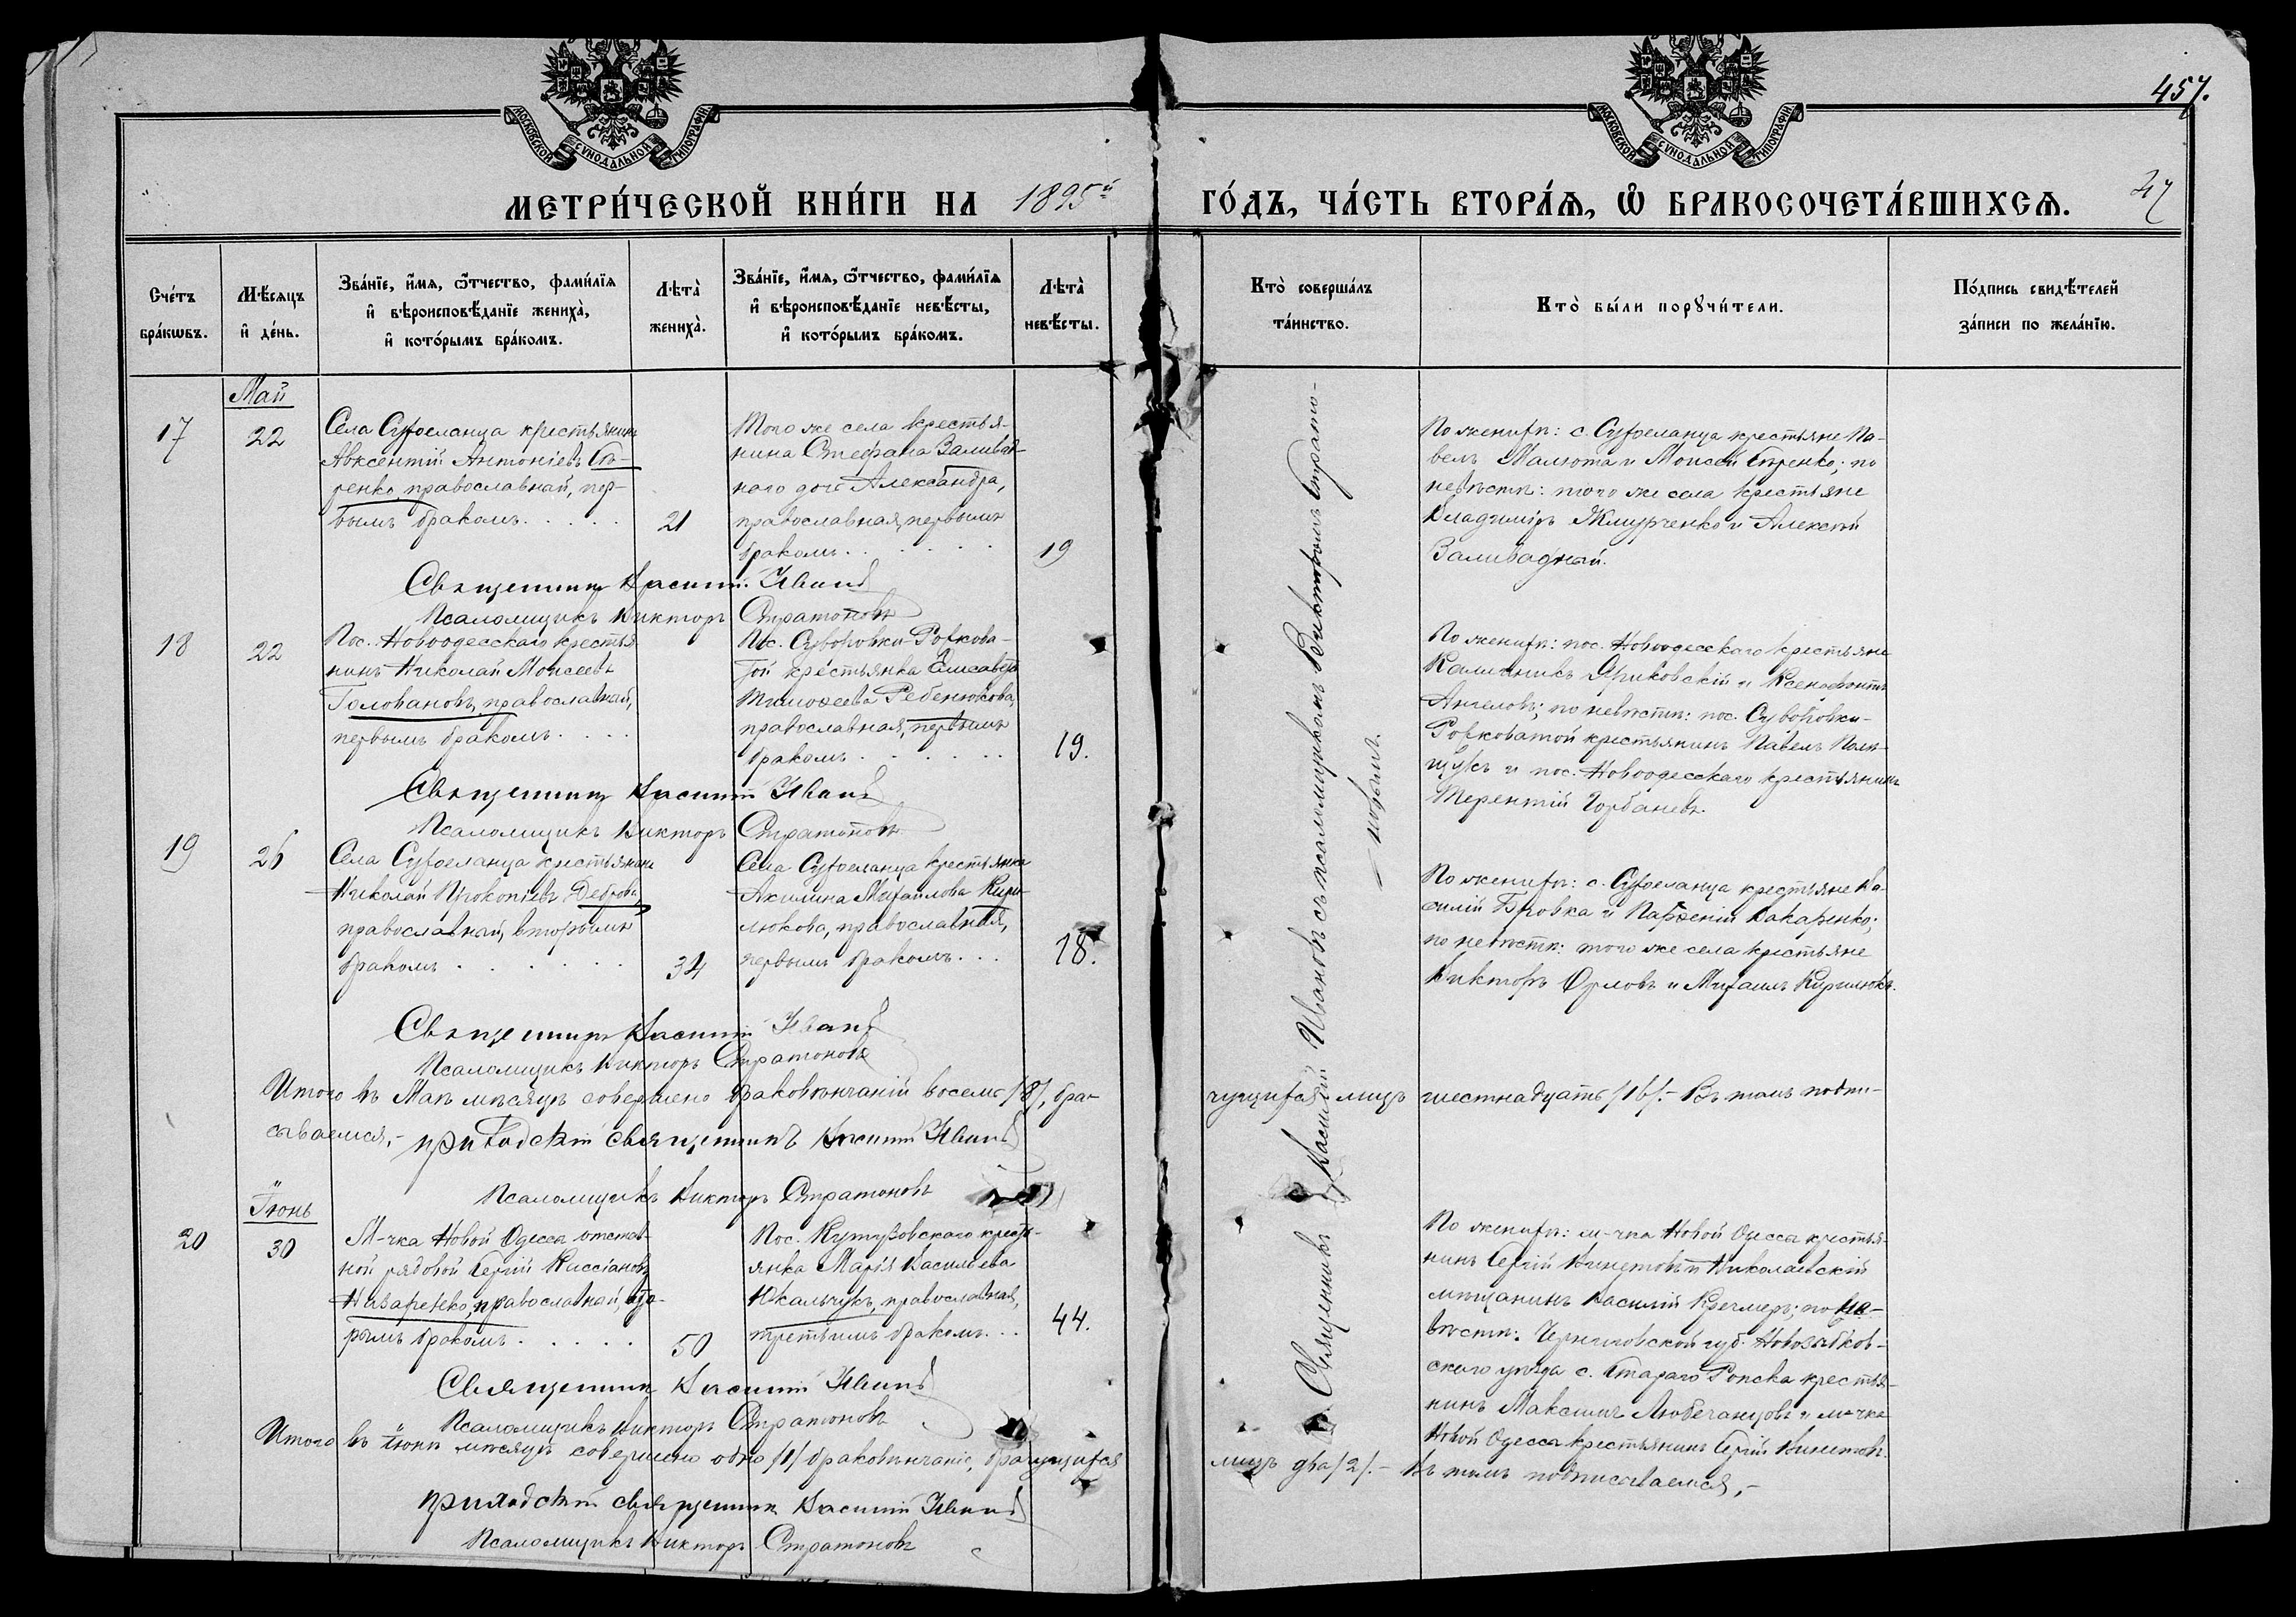 МОСКОВСКОЙ СѴНОДАЛЬНОЙ ТИПОГРАФІИ.
МОСКОВСКОЙ СѴНОДАЛЬНОЙ ТИПОГРАФІИ.
457.
МЕТРИ́ЧЕСКОЙ КНИ́ГИ НА 1895й
ГО́ДЪ, ЧА́СТЬ ВТОРА́Я, Ѡ҆ БРАКОСОЧЕТА́ВШИХСЯ.
Сче́тъ
бра́кѡвъ.
Мѣ́сяцъ
и҆ де́нь.
Зва́нїе, и҆́мя, ѻ҆́тчество, фами́лїя
и҆ вѣроисповѣ́данїе жениха̀,
и҆ кото́рымъ бра́комъ.
Лѣта̀
жениха̀.
Зва́нїе, и҆́мя, ѻ҆́тчество, фами́лїя
и҆ вѣроисповѣ́данїе невѣ́сты,
и҆ кото́рымъ бра́комъ.
Лѣта̀
невѣ́сты.
Кто̀ соверша́лъ
та́инство.
Кто̀ бы́ли порꙋчи́тели.
По́дпись свидѣ́телей
за́писи по жела́нїю.
Май
17
22
Села Сухоеланца крестьянинъ
Авксентій Антоніевъ
ренко, православный, пер-
вымъ бракомъ.....
21
Того же села крестья-
нина Стефана Заливад-
наго дочь Александра,
православная, первымъ
бракомъ.......
19
По женихѣ: с. Сухоеланца крестьяне Па-
велъ Малюта и Моисей; по
невѣстѣ: того же села крестьяне
Владиміръ Жмурченко и Алексѣй
Заливадный.
Священникъ Василій Ивановъ
Псаломщикъ Викторъ Стратоновъ
18
22
Пос. Новоодесскаго крестья-
нинъ Николай Моисеевъ
Головановъ, православный,
первымъ бракомъ....
Пос. Суворовки-Рохкова-
той крестьянка Елисавета
Тимоѳеева Ребенюкова,
православная, первымъ
бракомъ......
19.
По женихѣ: пос. Новоодесскаго крестьяне
Калинникъ Яриковскій и Ксенофонтъ
Ангеловъ; по невѣстѣ: пос. Суворовки-
Рохковатой крестьянинъ Павелъ Поли-
щукъ и пос. Новоодесскаго крестьянинъ
Терентій Горбаневъ.
Священникъ Василій Ивановъ
Псаломщикъ Викторъ Стратоновъ
19
26
Села Сухоеланца крестьянинъ
Николай Прокопіевъ Дебровъ,
православный, вторымъ
бракомъ.......
34
Села Сухоеланца крестьянка
Акилина Михайлова Кири-
люкова, православная,
первымъ бракомъ...
18.
По женихѣ: с. Сухоеланца крестьяне Ва-
силій Бровка и Парѳеній Макаренко;
по невѣстѣ: того же села крестьяне
Викторъ Орловъ и Михаилъ Кирилюкъ.
Священникъ Василій Ивановъ
Псаломщикъ Викторъ Стратоновъ
Итого въ Маѣ мѣсяцѣ совершено браковѣнчаній восемь /8/, бра-
чущихся лицъ шестнадцать /16/.- Въ томъ подпи-
сываемся,-
приходскій священникъ Василій Ивановъ
Псаломщикъ Викторъ Стратоновъ
Іюнь
20
30
М-чка Новой Одесса отстав-
ной рядовой Сергій Кассіановъ
Назаренко, православный, вто-
рымъ бракомъ.....
50
Пос. Кутузовскаго кресть-
янка Марія Васильева
Юкальчукъ, православная,
третьимъ бракомъ...
44.
По женихѣ: м-чка Новой Одесса крестья-
нинъ Сергій и Николаевскій
мѣщанинъ Василій Кречмеръ; по не-
вѣстѣ: Черниговской губ. Новозыбков-
скаго уѣзда с. Стараго Ропска крестья-
нинъ Максимъ Любечанцовъ и м-чка
Новой Одесса крестьянинъ Сергій
Священникъ Василій Ивановъ
Псаломщикъ Викторъ Стратоновъ
Итого въ Іюнѣ мѣсяцѣ совершено одно /1/ браковѣнчаніе, брачущихся
лицъ два /2/.- Въ томъ подписываемся,-
приходскій священникъ Василій Ивановъ
Псаломщикъ Викторъ Стратоновъ
Священникъ Василій Ивановъ съ псаломщикомъ Викторомъ Страто-
новымъ.